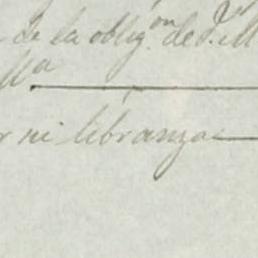 de la oblig.on de D.n M
lla
r ni libranza